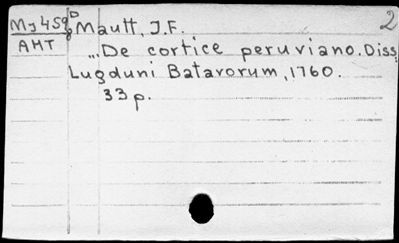 D
My 459 Mautt, J.F. 2
AMT
„De cortice peruviano. Diss.
Lugduni Batavorum, 1760.
33 p.